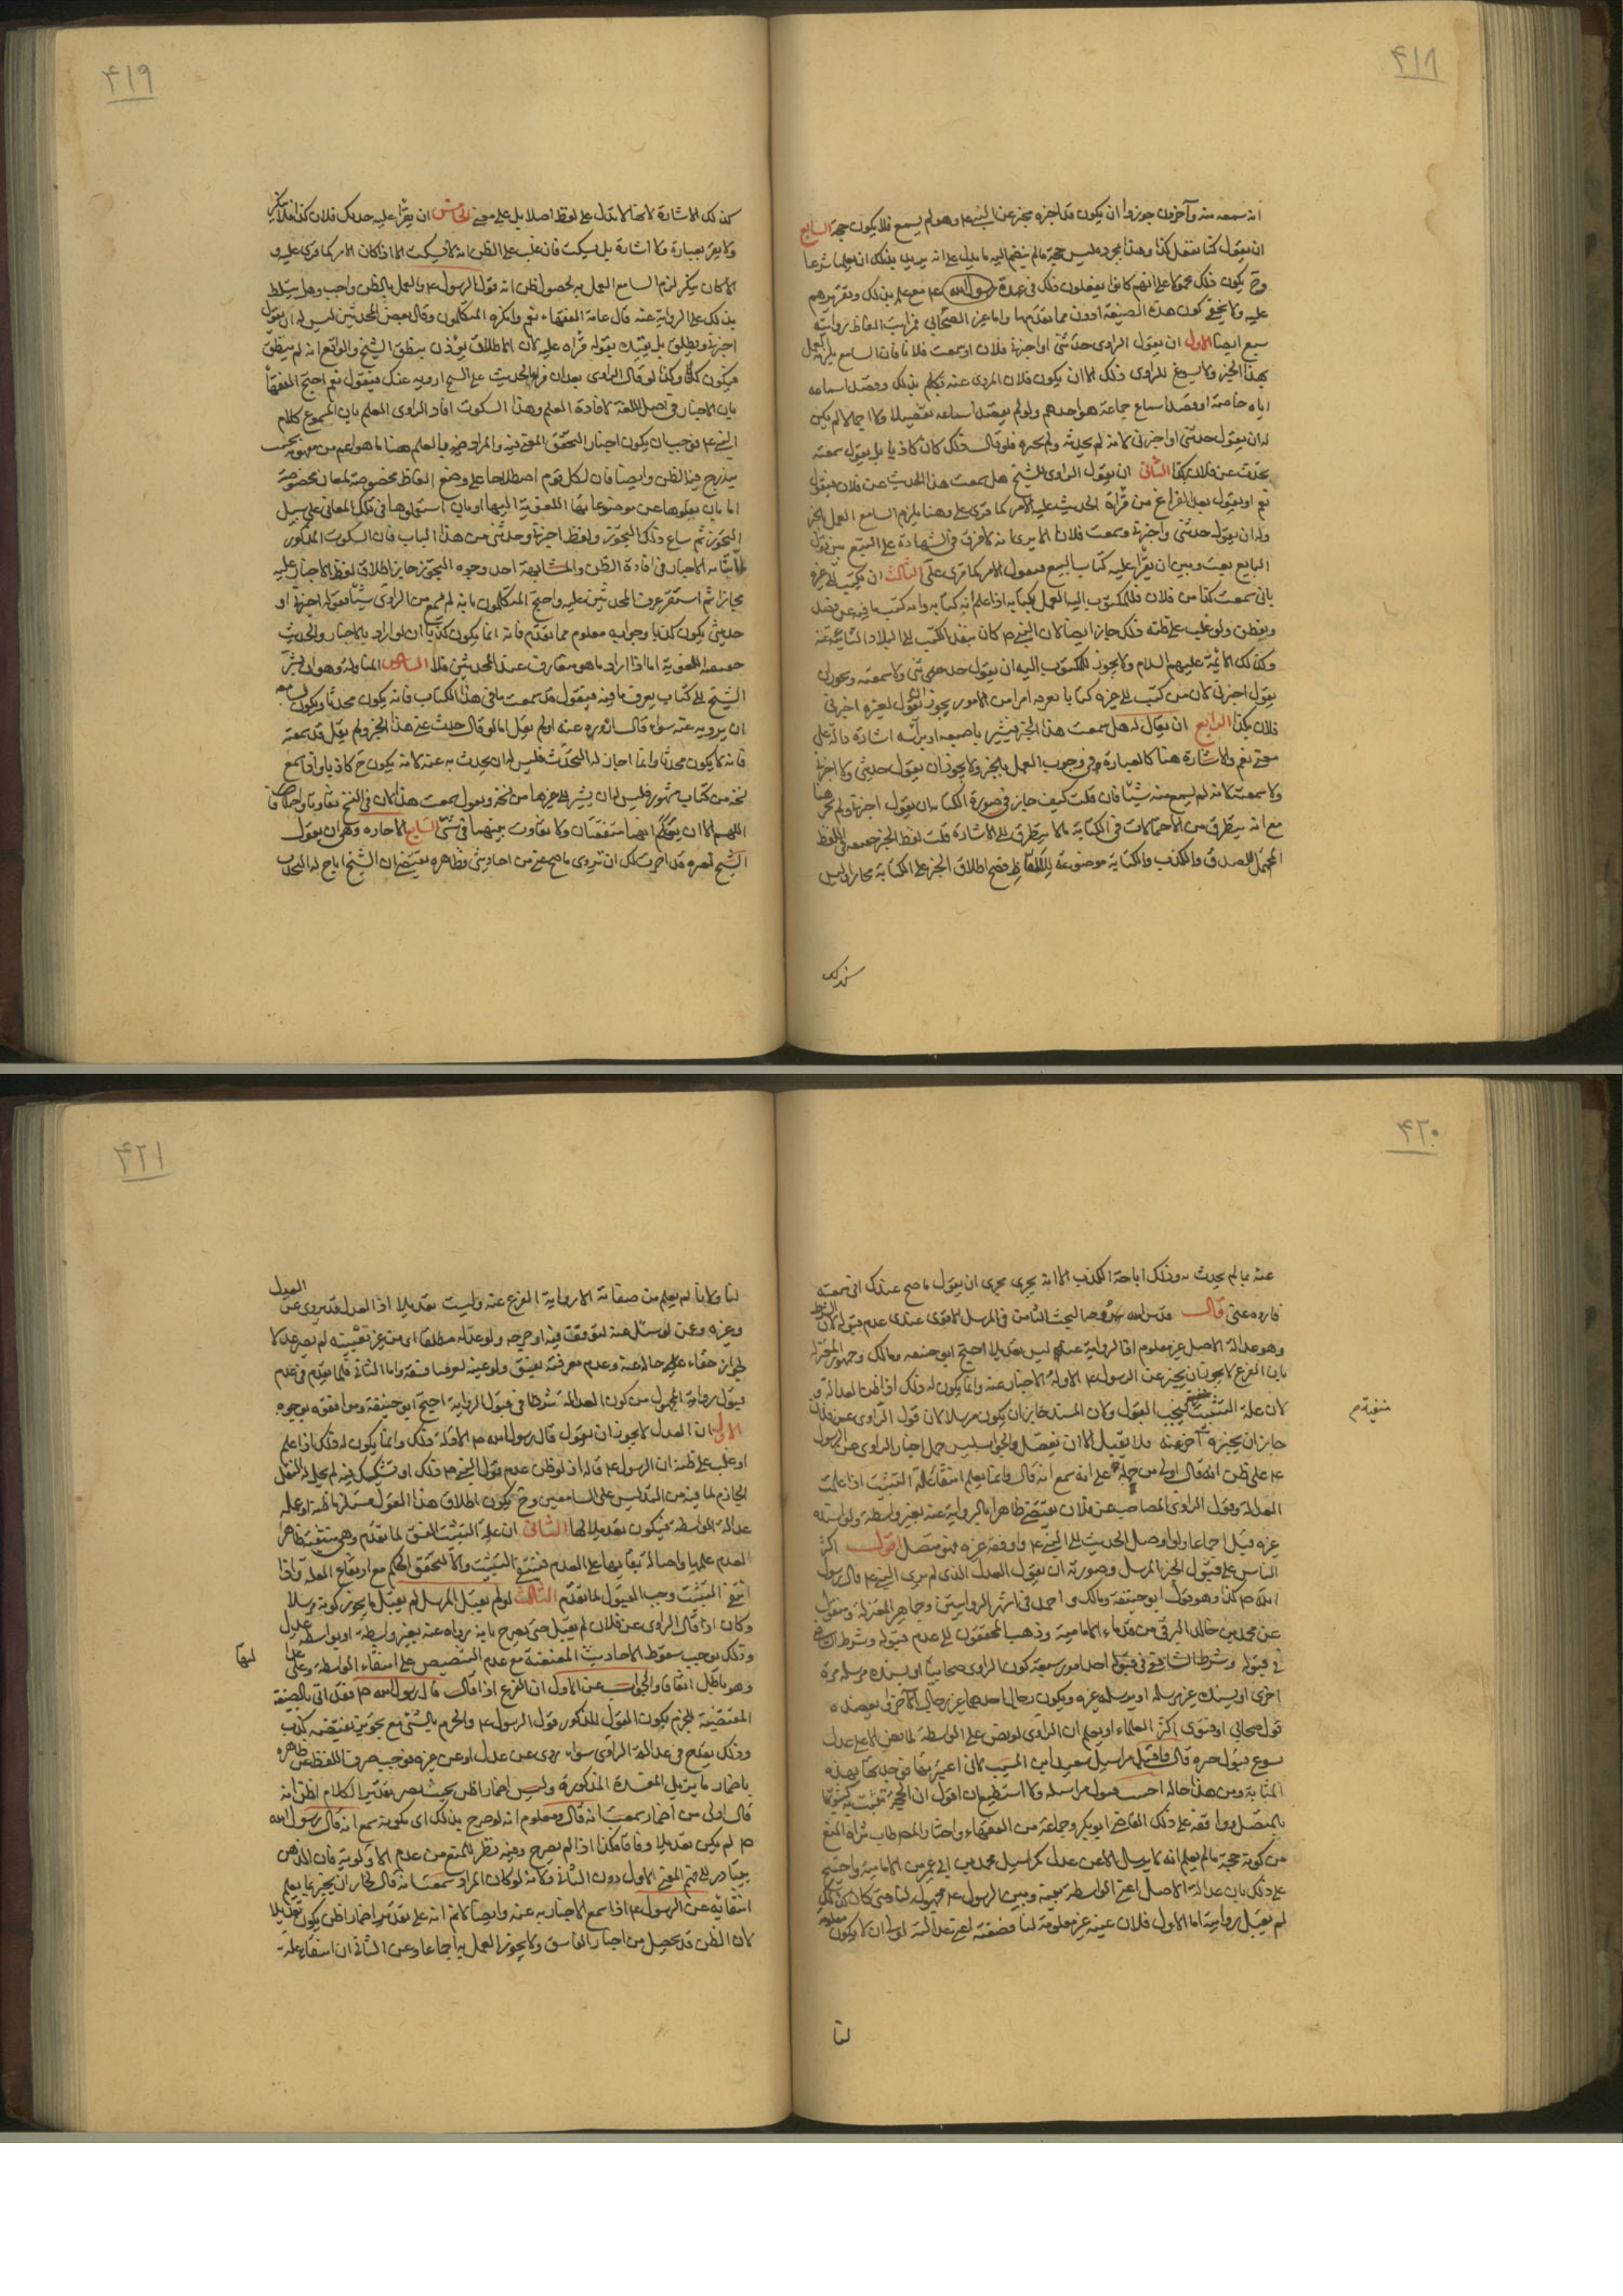 ۴۱۸
انه سمعه منه وآخرون جوزوا ان يكون قد اخبره مخبر عن النبي ۴ وهو لم يسمع فلا يكون حجة السابع
ان يقول كنا نفعل كذا وهذا بمجرده ليس حجة ما لم ينضم اليه ما يدل على انه يريد بذلك ان يعلمنا شرعا
وح يكون ذلك محمولا على انهم كانوا يفعلون ذلك في عهدة رسول الله ۴ مع علمه بذلك وتقريرهم
عليه ولا يخفى كون هذه الصيغة ادون مما تقدمها واما غير الصحابي فمراتب الفاظ روايته
سبع ايضا الاول ان يقول الراوى حدثنى او اخبرنى فلان او سمعت فلانا فان السامع يلزمه العمل
بهذا الخبر ولا يسوغ للراوى ذلك الا ان يكون فلان المروى عنه تكلم بذلك وقصد اسماعه
اياه خاصة او قصد اسماع جماعة هو احدهم ولو لم يقصد اسماعه تفصيلا ولا اجمالا لم يكن
له ان يقول حدثنى او اخبرنى لانه لم يحدثه ولم يخبره فلو قال ذلك كان كاذبا بل يقول سمعته
يحدث عن فلان بكذا الثانى ان يقول الراوى للشيخ هل سمعت هذا الحديث عن فلان فيقول
نعم او يقول بعد الفراغ من قرأة الحديث عليه الامر كما قرى على وهنا يلزم السامع العمل بالخبر
وله ان يقول حدثنى واخبرنى وسمعت فلانا الا يرى انه لا فرق في الشهادة على البيع بين قول
البايع بعت وبين ان يقرأ عليه كتاب البيع فيقول الامر كما قرى على الثالث ان يكتب الى غيره
بانى سمعت كذا من فلان فللمكتوب اليه العمل بكتابه اذا علم انه كتابه
وكذلك الائمة عليهم السلام ولا يجوز للمكتوب اليه ان يقول حدثنى ولا سمعته ويجوز ان
يقول اخبرنى لان من كتب الى غيره كتابا يعرفه امرا من الامور يجوز ان يقول لغيره اخبرنى
فلان بكذا الرابع ان يقال له هل سمعت هذا الخبر فيشير باصبعه او براسه اشارة دالة على
معنى نعم والاشارة هنا كالعبارة في وجوب العمل بالخبر ولا يجوز ان يقول حدثنى ولا اخبرنى
ولا سمعته لانه لم يسمع منه شيئا فان قلت كيف جاز في صورة الكتابة ان يقول اخبرنى ولم يجز هنا
مع انه يتطرق من الاحتمالات في الكتابة ما لا يتطرق الى الاشارة قلت لفظ الخبر حقيقة في اللفظ
المحتمل للصدق والكذب والكتابة موضوعة للالفاظ فصح اطلاق الخبر على الكتابة مجازا وليس
كذلك
۴۱۹
كذلك الاشارة لانها لا تدل على لفظ اصلا بل على معنى الخامس ان يقرأ عليه حدثك فلان كذا فلا ينكر
ولا يقر بعبارة ولا اشارة بل يسكت فان غلب على الظن انه لا يسكت الا اذا كان الامر كما قرى عليه و
الا كان ينكر لزم السامع العمل به لحصول ظن انه قول الرسول ۴ والعمل بالظن واجب وهل يتسلط
بذلك على الرواية عنه قال عامة الفقهاء نعم وانكره المتكلمون وقال بعض المحدثين ليس له ان يقول
اخبرنى ويطلق بل يقيده بقوله قرأه عليه لان الاطلاق يؤذن بنطق الشيخ والواقع انه لم ينطق
فيكون كذبا وكذا لو قال الراوى بعد ان قرأ الحديث على الشيخ ارويه عنك فيقول نعم احتج الفقهأ
بان الاخبار في اصل اللغة لافادة العلم وهذا السكوت افاد الراوى العلم بان المسموع كلام
النبي ۴ فوجب ان يكون اخبارا
يندرج فيه الظن وايضا فان لكل قوم اصطلاحا على وضع الفاظ مخصوصة لمعان مخصوصة
اما بان ينقلوها عن موضوعاتها اللغوية اليها او بان استعملوها في تلك المعانى على سبيل
التجوز ثم ساع ذلك التجوز ولفظ اخبرنى وحدثنى من هذا الباب فان السكوت المذكور
لما شابه الاخبار في افادة الظن والمشابهة احد وجوه التجوز جاز اطلاق لفظ الاخبار عليه
مجازا ثم استقر عرف المحدثين عليه واحتج المتكلمون بانه لم يسمع من الراوى شيئا فقوله اخبرنى او
حدثنى يكون كذبا وجوابه معلوم مما تقدم فانه انما يكون كذبا ان لو اراد بالاخبار والحديث
حقيقته اللغوية اما اذا اراد ما هو متعارف عند المحدثين فلا السادس المناولة وهو ان يشير
الشيخ الى كتاب يعرف ما فيه فيقول قد سمعت ما في هذا الكتاب فانه يكون محدثا ويكون لسامعه
ان يرويه عنه سواء قال له اروه عنى او لم يقل اما لو قال حدث عنى هذا الخبر ولم يقل قد سمعته
فانه لا يكون محدثا وانما اجاز له التحدث فليس له ان يحدث به عنه لانه يكون ح كاذبا واذا سمع
نسخة من كتاب مشهور فليس له ان يشير الى غيرها من نسخه ويقول سمعت هذا لان في النسخ تفاوتا واختلافا
اللهم الا ان يعلم انهما متفقتان ولا تفاوت بينهما في شئ السابع الاجازه وهو ان يقول
الشيخ لغيره قد اجزت لك ان تروى ما صح عنى من احاديثى فظاهره يقتضى ان الشيخ اباح له التحدث
۴۲۰
عنه بما لم يحدث به وذلك اباحة الكذب الا انه يجرى مجرى ان يقول ما صح عندك انى سمعته
فاروه عنى قال قدس الله روحه البحث الثامن في المرسل الاقوى عندى عدم قبوله لان الشرط
وهو عدالة الاصل غير معلوم اذ الرواية عنه ليس تعديلا احتج ابو حنيفه ومالك وجمهور المعتزله
بان الفرع لا يجوز ان يخبر عن الرسول ۴ الا وله الاخبار عنه وانما يكون له ذلك اذا ظن العدالة و
لان علة التثبت الفسق فيجب القبول ولان المسند جاز ان يكون مرسلا لان قول الراوى عن فلان
منفية م
جاز ان يخبره آخر عنه فلا يقبل الا ان يفصل والجواب ليس حمل اخبار الراوى عن الرسول
۴ على ظن انه قال اولى من حمله على انه سمع انه قال وانما يعلم انتفاء علة التثبت اذا علمت
العدالة وقول الراوى المصاحب عن فلان يقتضى ظاهرا بالرواية عنه بغير واسطة ولو اسنده
غيره قبل اجماعا ولو اوصل الحديث الى النبي ۴ واوقفه غيره فهو متصل اقول اكثر
الناس على قبول الخبر المرسل وصورته ان يقول العدل الذى لم يرى النبي ۴ قال رسول
الله ص كذا وهو قول ابو حنيفة ومالك واحمد في اشهر الروايتين وجماهير المعتزلة ومنقول
عن محمد بن خالد البرقى من قدماء الامامية وذهب المحققون الى عدم قبوله وشرط الشافعى
في قبوله وشرط الشافعى في قبوله احد امور سبعة كون الراوى صحابيا او يسنده مرسله مرة
اخرى او يسنده غير مرسله او يرسله غيره ويكون رجال احدهما غير رجال الآخر او يعضده
قول صحابى او فتوى اكثر العلماء او يعلم ان الراوى لو نص على الواسطة لما نص الا على عدل
يسوغ قبول خبره قال واقبل مراسيل سعيد ابن المسيب لانى اعتبرتها فوجدتها بهذه
المثابة ومن هذا حاله احببت قبول مراسيله ولا استطيع ان اقول ان الحجة تثبت به كثبوتها
بالمتصل ووافقه على ذلك القاضى ابو بكر وجماعة من الفقهاء واختار المص طاب ثراه المنع
من كونه حجة ما لم يعلم انه لا يرسل الا عن عدل كمراسيل محمد بن ابى عمير من الامامية واحتج
على ذلك بان عدالة الاصل اعنى الواسطة بينه وبين الرسول ۴ مجهولة لنا ومتى كان كذلك
لم يقبل روايته اما الاول فلان عينه غير معلومة لنا فصفته اعنى عدالته اولى ان لا يكون معلومة
لنا
۴۲۱
لنا ولانا لم نعلم من صفاته الا رواية الفرع عنه وليست تعديلا اذ العدل قد يروى عن العدل
وغيره وعن لو سئل عنه لتوقف فيه او جرحه ولو عدله مطلقا اى من غير تعيينه لم يصر عدلا
لجواز خفاء حاله عنه وعدم معرفته بفسق ولو عينه لعرفنا فسقه واما الثانى فلما تقدم في عدم
قبول رواية المجهول من كون العدالة شرطا في قبول الرواية احتج ابو حنيفة وموافقوه بوجوه
الاول ان العدل لا يجوز ان يقول قال رسول الله ص الا وله ذلك وانما يكون له ذلك اذا علم
او غلب على ظنه ان الرسول ۴ قاله اذ لو ظن عدم قول النبي ۴ ذلك او تشكيك فيه لم يحل له النقل
الجازم لما فيه من التدليس على السامعين وح يكون اطلاق هذا القول مستلزما ظنه او علمه
عدالة الواسطة فيكون تعديلا لها الثانى ان علة التثبت الفسق لما تقدم وهى منتفية ظاهرا
لعدم علمها واصالة بقائها على العدم فينتفى التثبت والا لتحقق الحكم مع ارتفاع العلة واذا
انتفى التثبت وجب القبول لما تقدم الثالث لو لم يقبل المرسل لم يقبل ما يجوز كونه مرسلا
وكان اذا قال الراوى عن فلان لم يقبل حتى يصرح بانه رواه عنه بغير واسطة او بواسطة عدل
وذلك يوجب سقوط الاحاديث المعنعنة مع عدم التنصيص على انتفاء الواسطة وعلى
وهو باطل اتفاقا والجواب عن الاول ان الفرع اذا قال قال رسول الله ص فقد اتى بالصيغة
المقتضية للجزم بكون القول المذكور قول الرسول ۴ والجزم بالشئ مع تجويز نقيضه كذب
وذلك يقدح في عدالة الراوى سواء روى عن عدل او عن غيره فوجب صرف اللفظ عن ظاهره
باضمار ما يزيل المفسدة المذكورة وليس اضمار اظن بحيث يصير تقدير الكلام اظن انه
قال اولى من اضمار سمعت انه قال ومعلوم انه لو صرح بذلك اى بكونه سمع انه قال رسول الله
ص لم يكن تعديلا وفاقا فكذا اذا لم يصرح وفيه نظر للمنع من عدم الاولوية فان الذهن
يتبادر الى فهم المعنى الاول دون الثانى ولانه لو كان المراد سمعت انه قال لجاز ان يخبر بما يعلم
انتفائه عن الرسول ۴ اذا سمع الاخبار به عنه وايضا لا نم انه على تقدير اضمار اظن يكون تعديلا
لان الظن قد يحصل من اخبار الفاسق ولا يجوز العمل به اجماعا وعن الثانى ان انتفاء علة